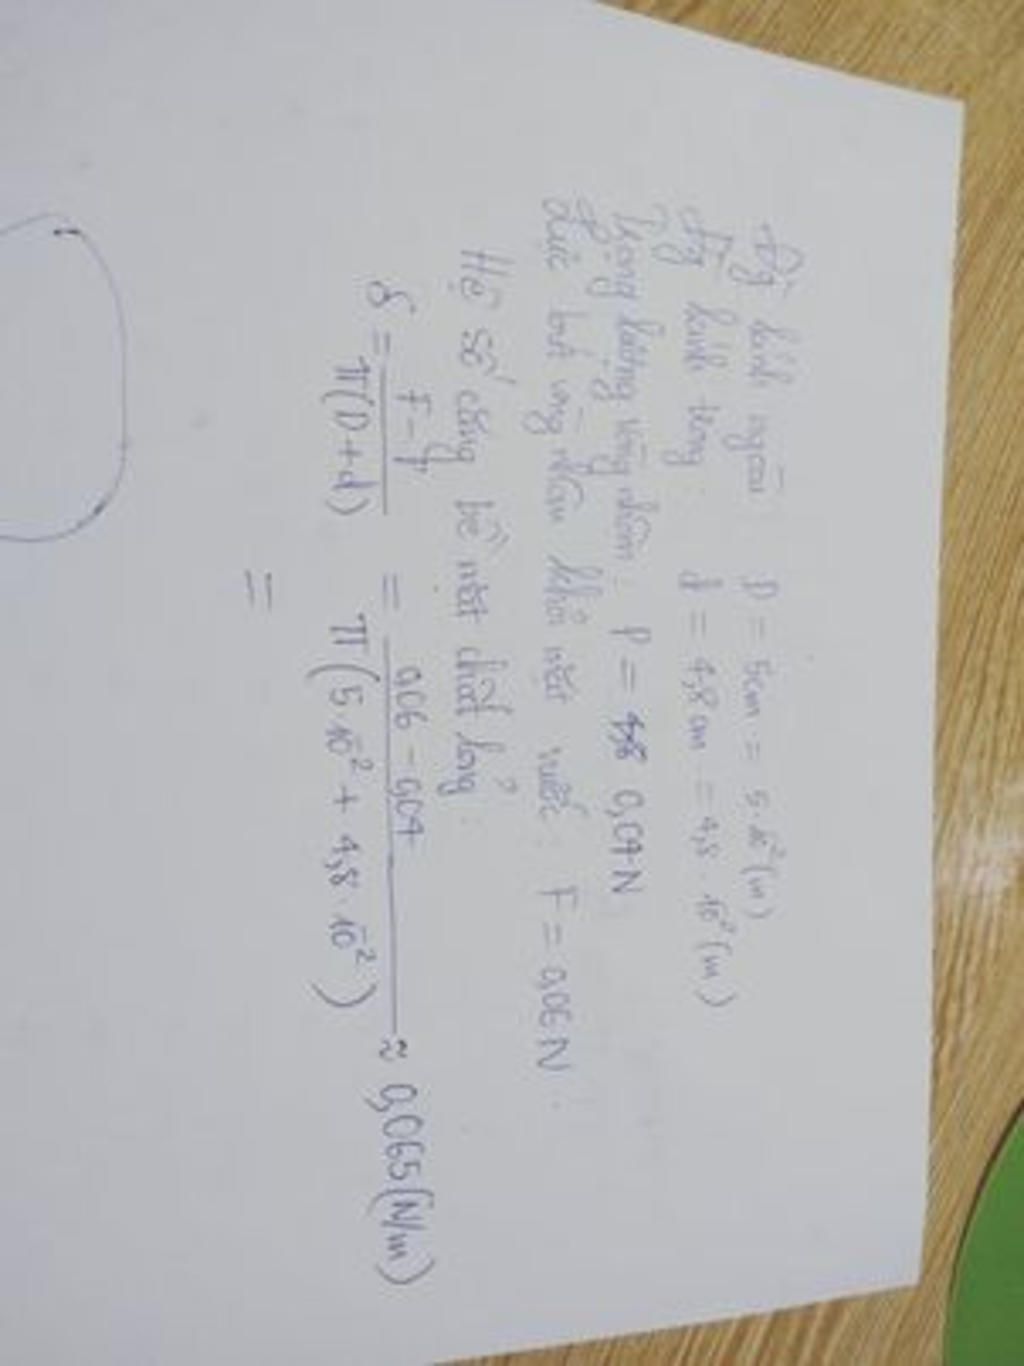 Đg kính ngoài D = 5cm = 5.10⁻²(m)
đg kính trong: d = 4,8 cm = 4,8.10⁻²(m)
Trọng lượng vòng nhôm: P = 0,04N
Lực bứt vòng nhôm khỏi mặt nước: F = 0,06N.
Hệ số căng bề mặt chất lỏng:
δ = (F - P)/(π(D+d)) = (0,06 - 0,04)/(π(5.10⁻² + 4,8.10⁻²)) ≈ 0,065(N/m)
=